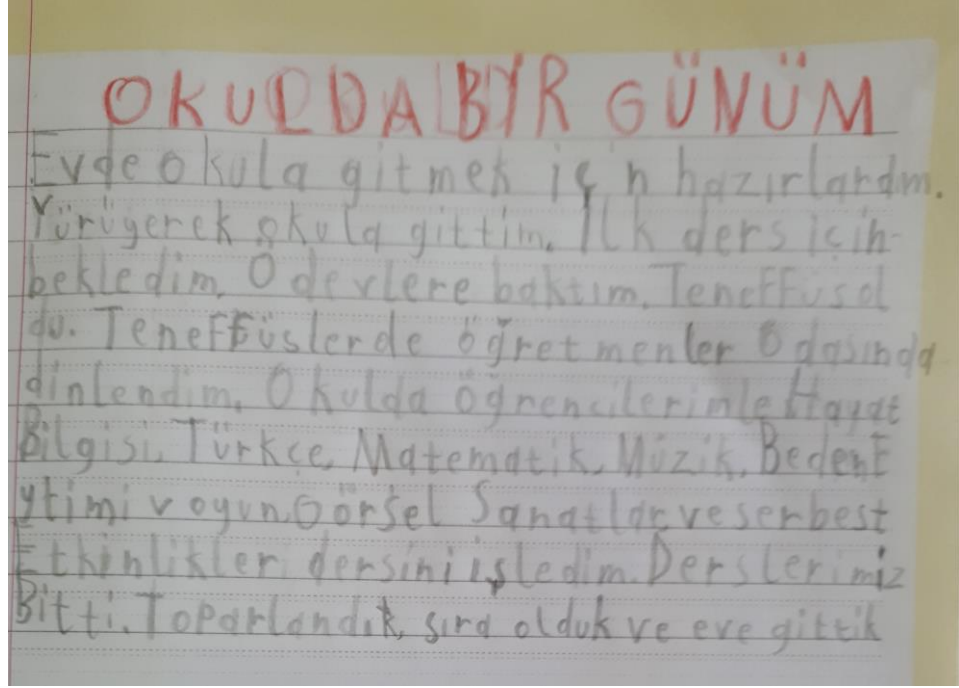 OKULDA BİR GÜNÜM
Evde okula gitmek için hazırlardım.
Yürüyerek okula gittim. İlk ders için
bekledim. Ödevlere baktım. Teneffüs ol
du. Teneffüslerde öğretmenler Odasında
dinlendim. Okulda öğrencilerimle Hayat
Bilgisi, Türkçe, Matematik, Müzik, Beden E
ytimi v oyun, Görsel Sanatlar ve serbest
Etkinlikler dersini işledim. Derslerimiz
Bitti. Toparlandık, sıra olduk ve eve gittik